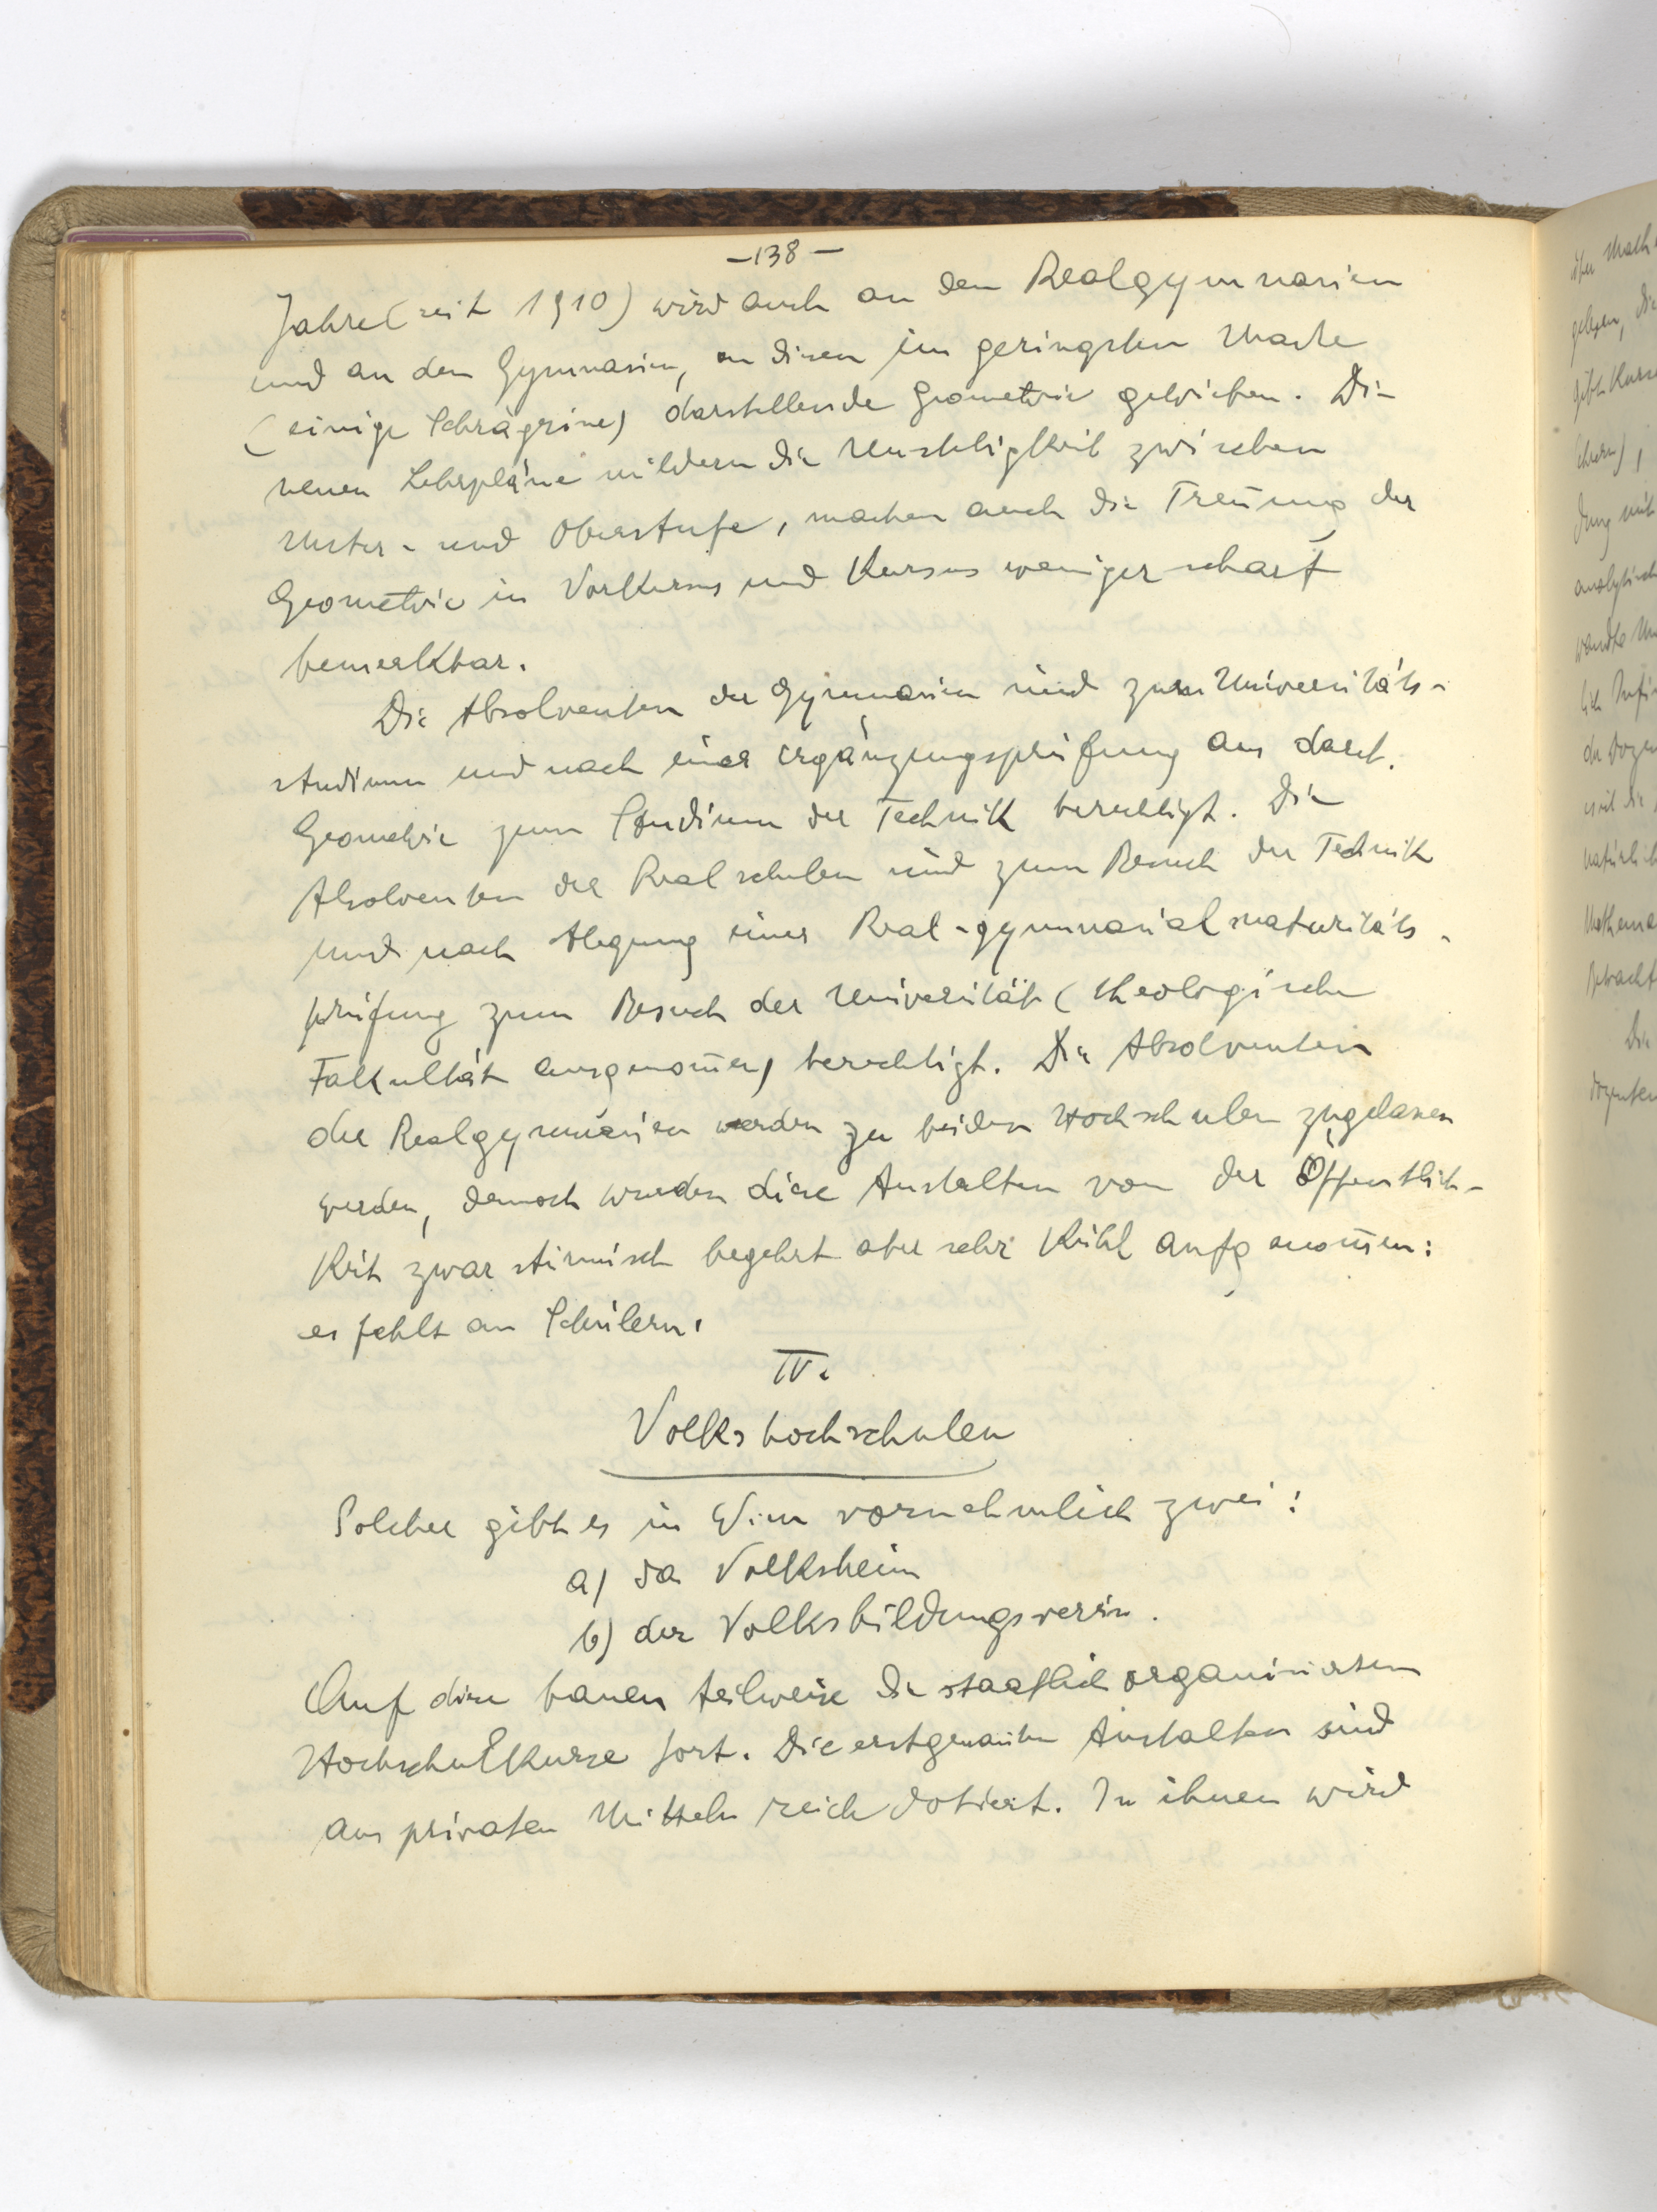 —138—
Jahre (seit 1910) wird auch an den Realgymnasien
und an den Gymnasien, an diesen im geringsten Masse
(einige Schrägrisse) darstellende Geometrie getrieben. Die
neuen Lehrpläne mildern die Unstetigkeit zwischen
Unter- und Oberstufe, machen auch die Treñung der
Geometrie in Vorkursus und Kursus weniger scharf
bemerkbar.
Die Absolventen der Gymnasien sind zum Universitäts-
studium und nach einer Ergänzungsprüfung aus darst.
Geometrie zum Studium der Technik berechtigt. Die
Absolventen der Realschulen sind zum Besuch der Technik
und nach Ablegung einer Real-gymnasialmaturitäts-
prüfung zum Besuch der Universität (theologische
Fakultät ausgenom̄en) berechtigt. Die Absolventen
der Realgymnasien werden zu beiden Hochschulen zugelassen
werden, dennoch wurden diese Anstalten von der Öffentlich-
keit zwar stürmisch begehrt aber sehr kühl aufgenom̄en:
es fehlt an Schülern.
IV.
Volkshochschulen
Solcher gibt es in Wien vornehmlich zwei:
a) das Volksheim
b) der Volksbildungsverein.
Auf diese bauen teilweise die staatlich organisierten
Hochschulkurse fort. Die erstgenañten Anstalten sind
aus privaten Mitteln reich dotiert. In ihnen wird